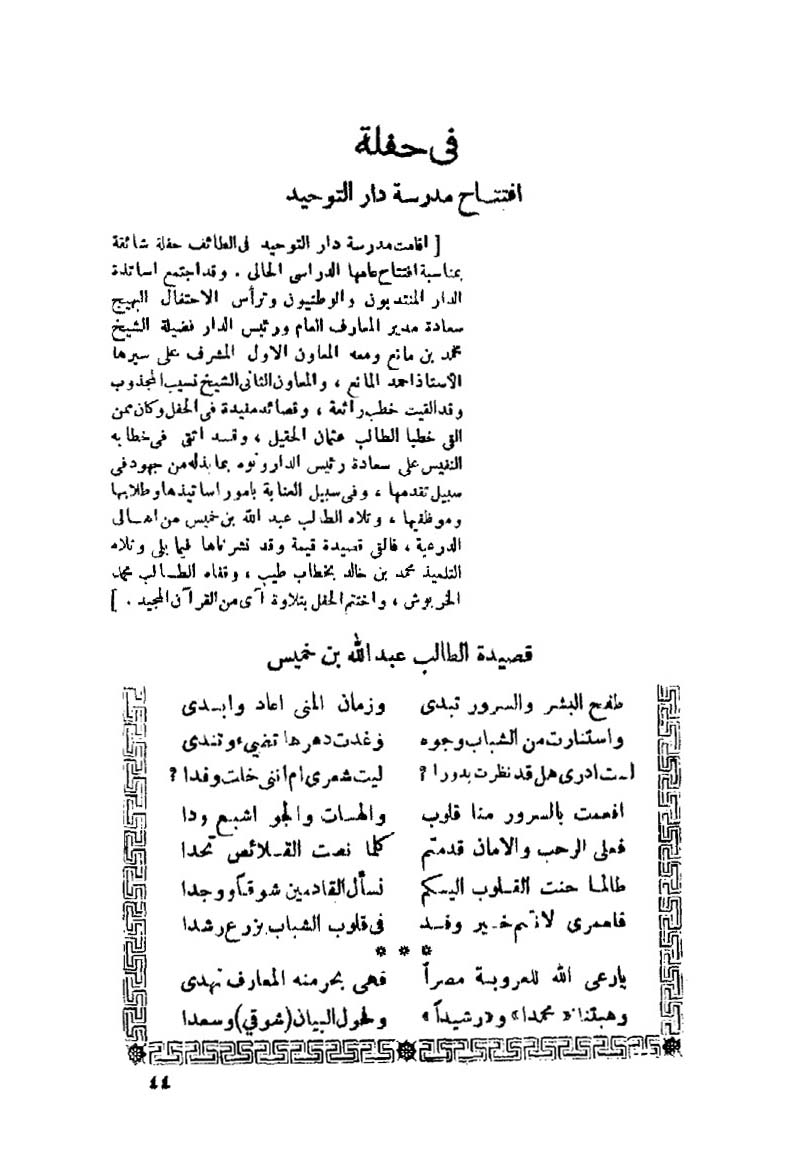 في حفلة
افتتاح مدرسة دار التوحيد
[ اقامت مدرسة دار التوحيد في الطائف حفلة شائقة
بمناسبة افتتاح عامها الدراسي الحالي . وقد اجتمع اساتذة
الدار المنتدبون والوطنيون وترأس الاحتفال البهيج
سعادة مدير المعارف العام ورئيس الدار فضيلة الشيخ
محمد بن مانع ومعه المعاون الاول المشرف على سيرها
الأستاذ احمد المانع ، والمعاون الثاني الشيخ نسيب المجذوب
وقد القيت خطب رائعة ، وقصائد مفيدة في الحفل وكان ممن
القى خطبا الطالب عثمان الحقيل ، وقد اثنى في خطابه
النفيس على سعادة رئيس الدار ونوه بما بذله من جهود في
سبيل تقدمها ، وفي سبيل العناية بامور اساتيذها وطلابها
وموظفيها ، وتلاه الطالب عبد الله بن خميس من اهالى
الدرعية ، فالقى قصيدة قيمة وقد نشرناها فيما يلى وتلاه
التلميذ محمد بن خالد بخطاب طيب ، وقفاه الطالب محمد
الخربوش ، واختتم الحفل بتلاوة آى من القرآن المجيد . ]
قصيدة الطالب عبد الله بن خميس
طفح البشر والسرور تبدى وزمان المنى اعاد وابدى
واستنارت من الشباب وجوه وغدت دهرها تضيء وتندى
لست ادرى هل قد نظرت بدورا ؟ ليت شعرى ام انني خلت وفدا ؟
افعمت بالسرور منا قلوب والهسات والجو اشبع ودا
فعلى الرحب والامان قدمتم كلما نصت القلائص تحدا
طالما حنت القلوب اليكم نسأل القادمين شوقاً ووجدا
فلعمرى لانتم خير وفد في قلوب الشباب يزرع رشدا
* * *
يارعى الله للعروبة مصراً فهى بحر منه المعارف تهدى
وهبتنا « محمدا » و « رشيداً » وفحول البيان (شوقي) وسعدا
٤٤